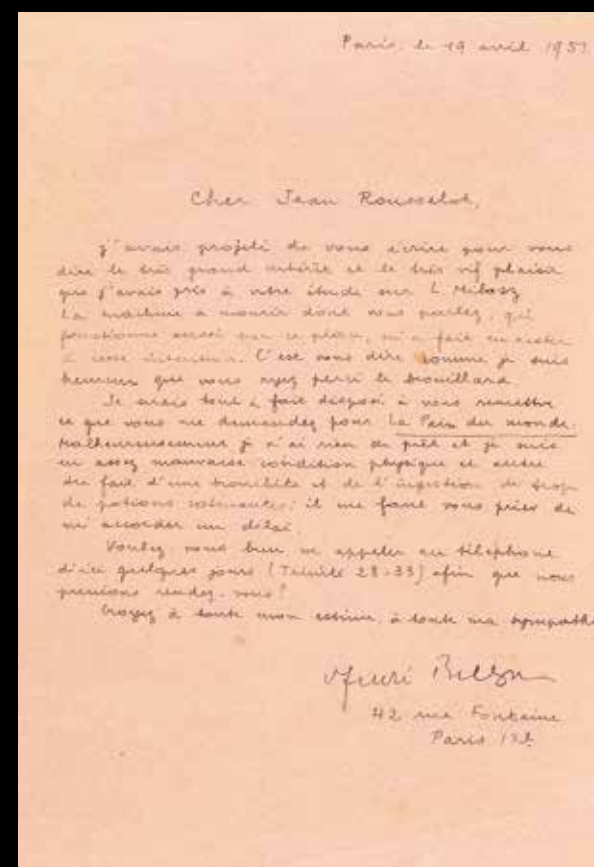 Paris, le 19 avril 195
Cher Jean Rousselot,
J'avais projeté de vous écrire pour vous
dire le très grand intérêt et le très vif plaisir
que j'avais pris à votre étude sur Milosz
La machine à mourir dont vous parlez, qui
fonctionne aussi sur ce plan, m'a fait en rester
à cette intention. C'est vous dire comme je suis
heureux que vous ayez percé le brouillard.
Je serais tout à fait disposé à vous remettre
ce que vous me demandez pour La Paix du monde.
Malheureusement je n'ai rien de prêt et je suis
en assez mauvaise condition physique et autre
du fait d'une bronchite et de l'ingestion de trop
de potions calmantes: il me faut vous prier de
m'accorder un délai.
Voulez-vous bien m'appeler au téléphone
d'ici quelques jours (Trinité 28-33) afin que nous
prenions rendez-vous?
Croyez à toute mon estime, à toute ma sympathi
42 rue Fontaine
Paris